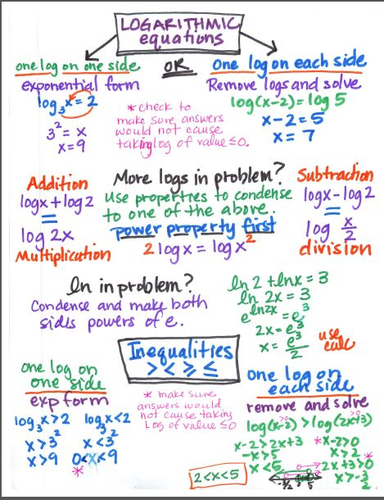 LOGARITHMIC
equations
one log on one side
OR
one log on each side
exponential form
Remove logs and solve
log₃x = 2
3² = x
x = 9
*check to
make sure answers
would not cause
taking log of value ≤ 0.
log(x-2) = log 5
x-2 = 5
x = 7
Addition
logx + log2
=
log 2x
Multiplication
More logs in problem?
Use properties to condense
to one of the above.
power property first
2 log x = log x²
Subtraction
logx - log2
=
log x/2
division
ln in problem?
Condense and make both
sides powers of e.
ln 2 + lnx = 3
ln 2x = 3
e^ln2x = e³
2x = e³
x = e³/2
use
calc
Inequalities
> < ≥ ≤
one log on
one side
exp form
log₃x > 2
x > 3²
x > 9
log₃x < 2
x < 3²
0 < x < 9
*
* make sure
answers would
not cause taking
Log of value ≤ 0
one log on
each side
remove and solve
log(x-2) > log(2x+3)
x-2 > 2x+3
-x > 5
*x-2>0
x>2
2x+3>0
2<x<5